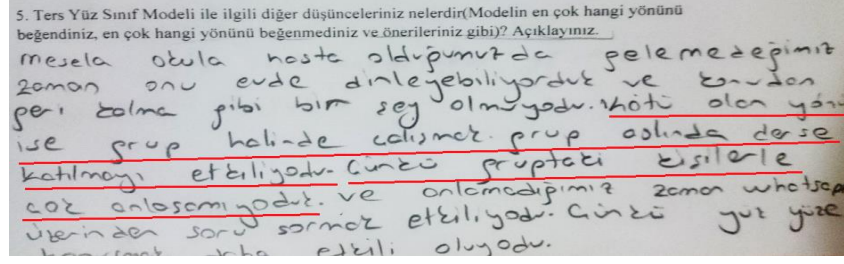 5. Ters Yüz Sınıf Modeli ile ilgili diğer düşünceleriniz nelerdir(Modelin en çok hangi yönünü
beğendiniz, en çok hangi yönünü beğenmediniz ve önerileriniz gibi)? Açıklayınız.
mesela okula hasta olduğumuzda gelemedeğimiz
zaman onu evde dinleyebiliyorduk ve konudan
geri kalma gibi bir şey olmuyodu. Kötü olan yönü
ise grup halinde calışmak. grup aslında derse
katılmayı etkiliyodu. Günkü gruptaki kişilerle
çok anlaşamıyoduk. ve anlamadığımız zaman whatsap
üzerinden soru sormak etkiliyodu. Günkü yüz yüze
daha etkili oluyodu.